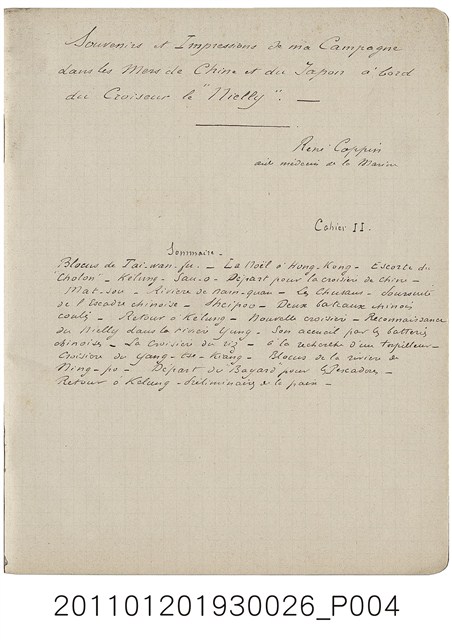 Souvenirs et Impressions de ma Campagne
dans les Mers de Chine et du Japon à bord
du Croiseur le "Nielly". —
René Coppin
aide médecin de la Marine
Cahier II.
Sommaire.
Blocus de Taï-wan-fu. — La Noël à Hong-Kong — Escorte du
"Cholon" — Kelung — Sau-o — Départ pour la croisière de Chine —
Mat-sou — Rivière de Nam-quan — Les Chusans — Poursuite
de l'Escadre chinoise — Sheïpoo — Deux bateaux chinois
coulés — Retour à Kelung — Nouvelle croisière — Reconnaissance
du Nielly dans la rivière Yung — Son accueil par les batteries
chinoises — La Croisière du riz — à la recherche d'un torpilleur —
Croisière du Yang-tse-Kiang — Blocus de la rivière de
Ning-po — Départ du Bayard pour les Pescadores —
Retour à Kelung — Préliminaires de la paix —
201101201930026_P004